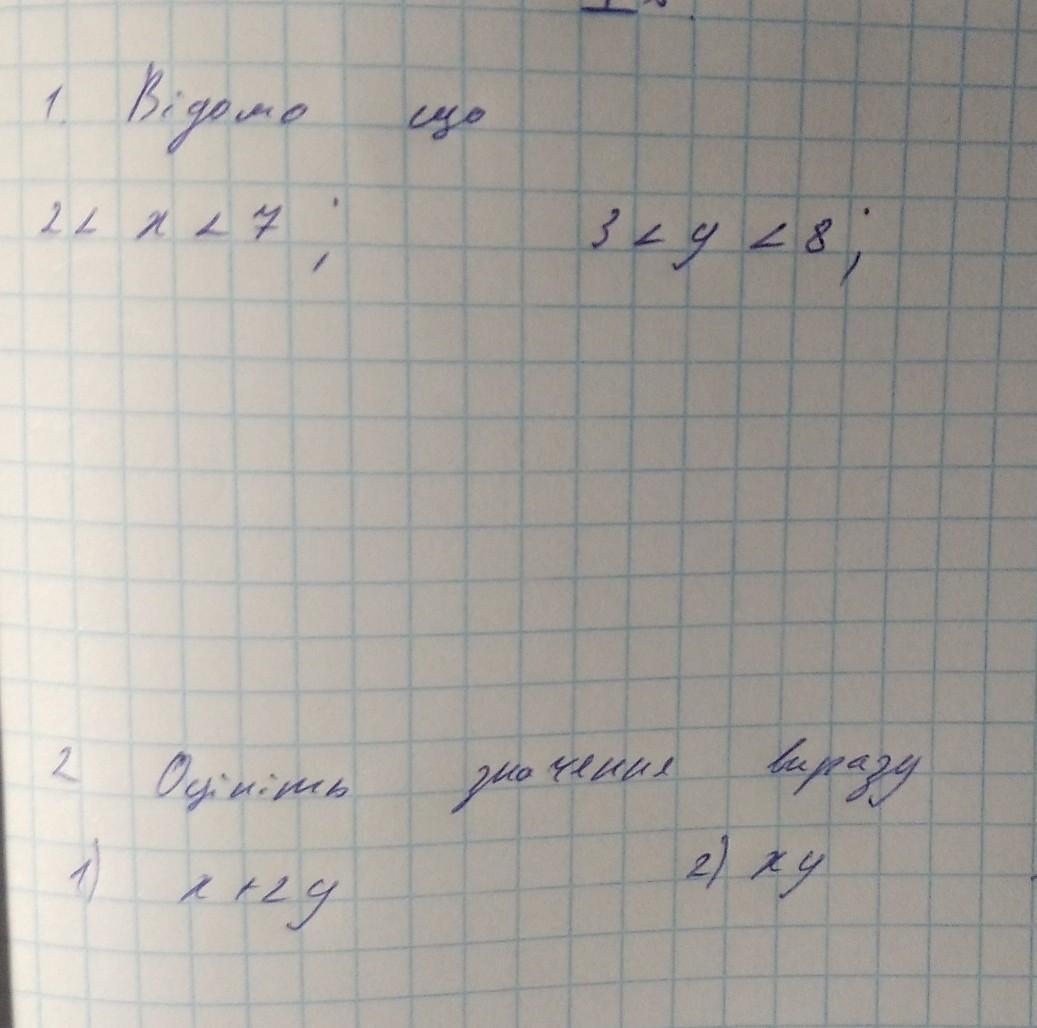 1. Відомо що
2 < x < 7 ; 3 < y < 8 ;
2 Оцініть значення виразу
1) x + 2y 2) xy